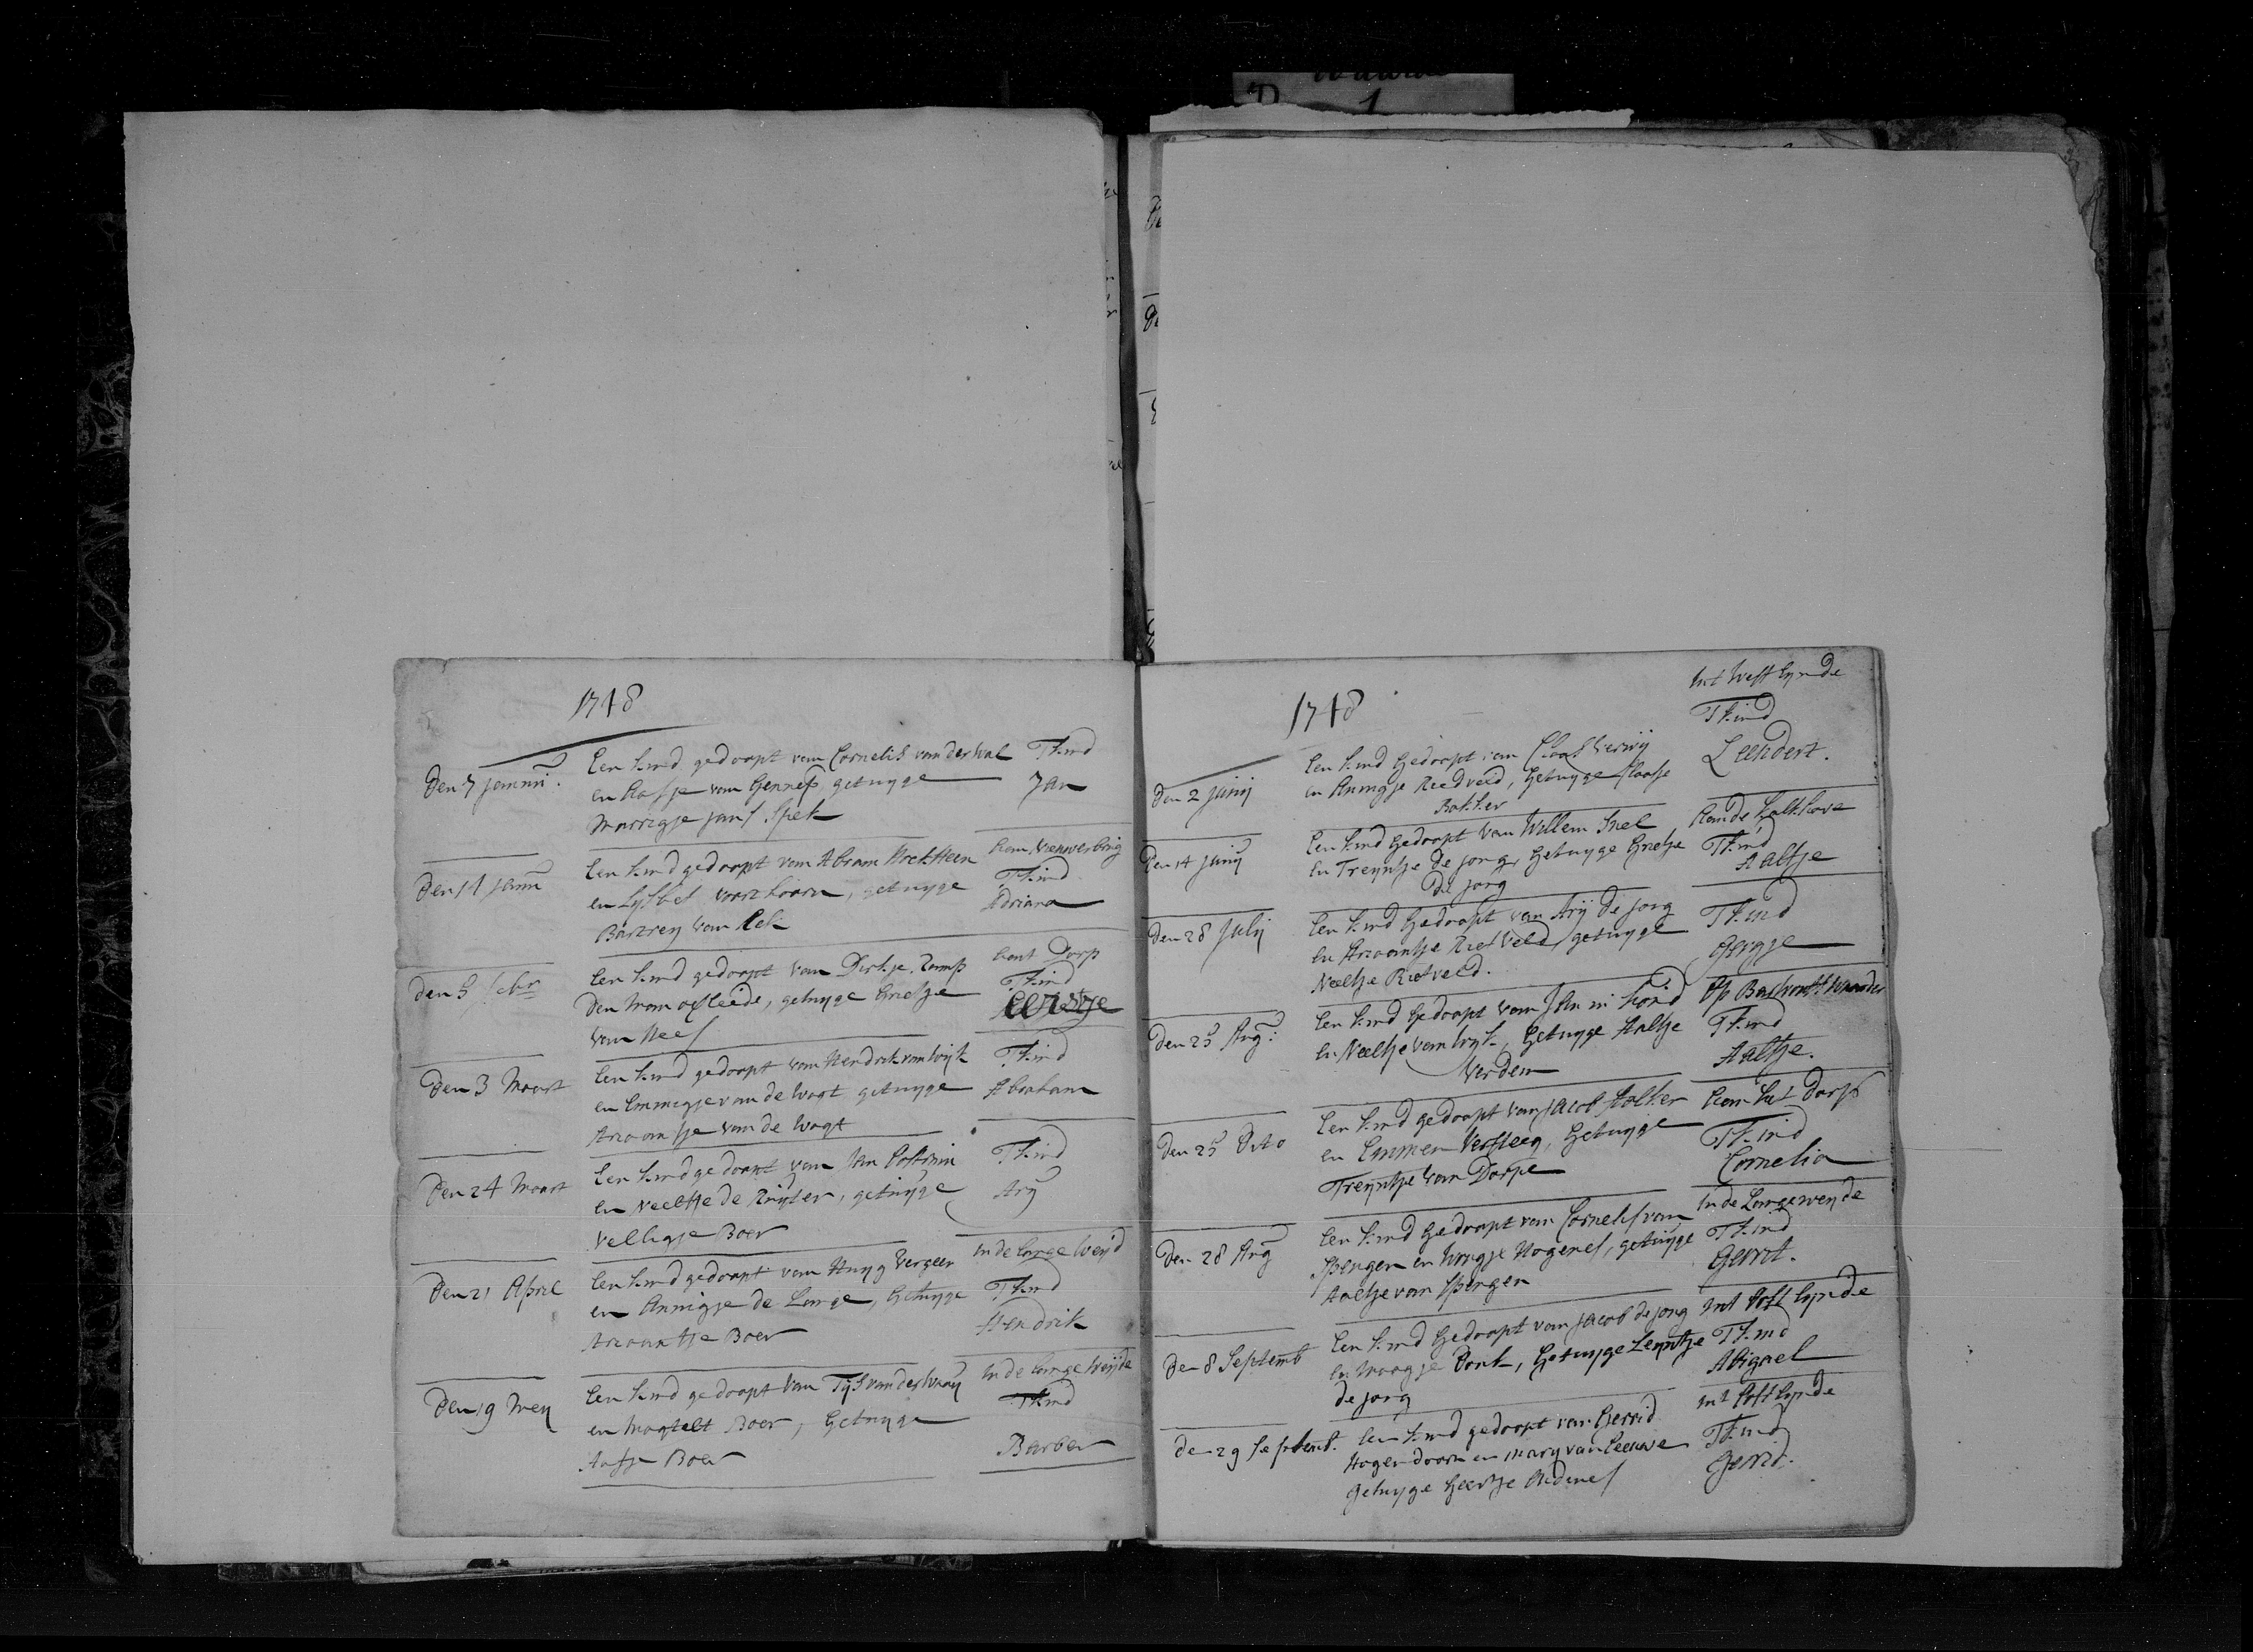 D 1
1748
Den 7 januari.
Een kind gedoopt van Cornelis van der Wal
en Aasje van Gennep, getuyge
Marrigje jans Spek
T kind
Jan
Den 14 janu
Een kind gedoopt van Abram Hoeksteen
en Lysbet voorthoorn, getuyge
Bartrey van Eck
T kind
Adriana
den 5 febr
Een kind gedoopt van Dirkje Kamp
Den man overleede, getuyge Grietje
van Nees
aant Dorp
T kind
Den 3 Maart
Een kind gedoopt van Hendrik van Wijk
en Emmigje van de Wagt getuyge
Ariaantje van de Wagt
T kind
Abraham
Den 24 Maart
Een kind gedoopt van Jan
en Neeltje de Ruijter, getuijge
Velligje Boer
T kind
Ary
Den 21 April
Een kind gedoopt van Huyg Vergeer
en Annigje de Lange, Getuyge
Ariaantje Boer
In de Lange Weyd
T kind
Hendrik
Den 19 Mey
Een kind gedoopt van Tys van der
en Magtelt Boer, Getuyge
Boer
In de Lange Weijde
T kind
Barber
1748
Int West Eynde
Den 2 junij
Een kind Gedoopt van Claas Verwij
en Annigje Reedveld, Getuyge Claasje
Bakker
T kind
Leendert.
Den 14 junij
Een kind Gedoopt van Willem Snel
En Treyntje de jong, Getuyge Grietje
de jong
Aan de Kalkhove
T kind
Aaltje
Den 28 julij
Een kind Gedoopt van Arij de jong
En Ariaantje Rietveld, getuyge
Neeltje Rietveld.
T kind
Den 25 Aug:
Een kind Gedoopt van Jan in
En Neeltje van Wyk, Getuyge Aaltje
T kind
Aaltje.
Den 25 Dito
Een kind gedoopt van Jacob
en Emmen Versteeg, Getuyge
Treyntje van Dorpe
Aan het Dorp
T kind
Cornelia
Den 28 Aug
Een kind Gedoopt van Cornelis van
Spengen en Hogenes, getuyge
Aaltje van Spengen
In de Lange weyde
T kind
Gerrit.
Den 8 Septemb
Een kind Gedoopt van Jacob de jong
En Maagje Donk, Getuyge Leyntje
de jong
Int Oost Eynde
T kind
Abigael
den 29 Septemb.
Een kind gedoopt van Gerrid
Hogendoorn en Mary van Leeuwe
Getuyge Geertje
Int Oost Eynde
T kind
Gerrid.